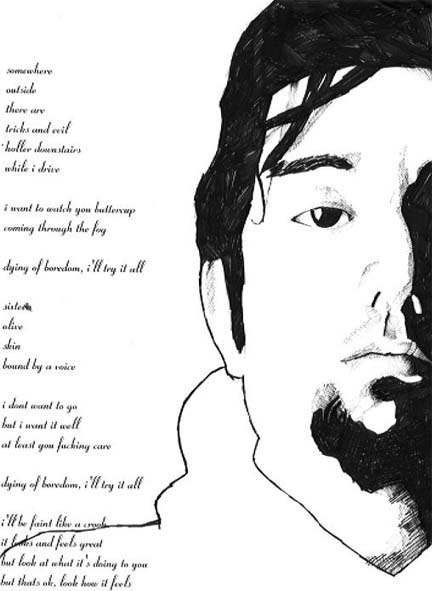 somewhere
outside
there are
tricks and evil
holler downstairs
while i drive
i want to watch you buttercup
coming through the fog
dying of boredom, i'll try it all
sisters
olive
skin
bound by a voice
i dont want to go
but i want it well
at least you fucking care
dying of boredom, i'll try it all
i'll be faint like a crook
it looks and feels great
but look at what it's doing to you
but thats ok, look how it feels